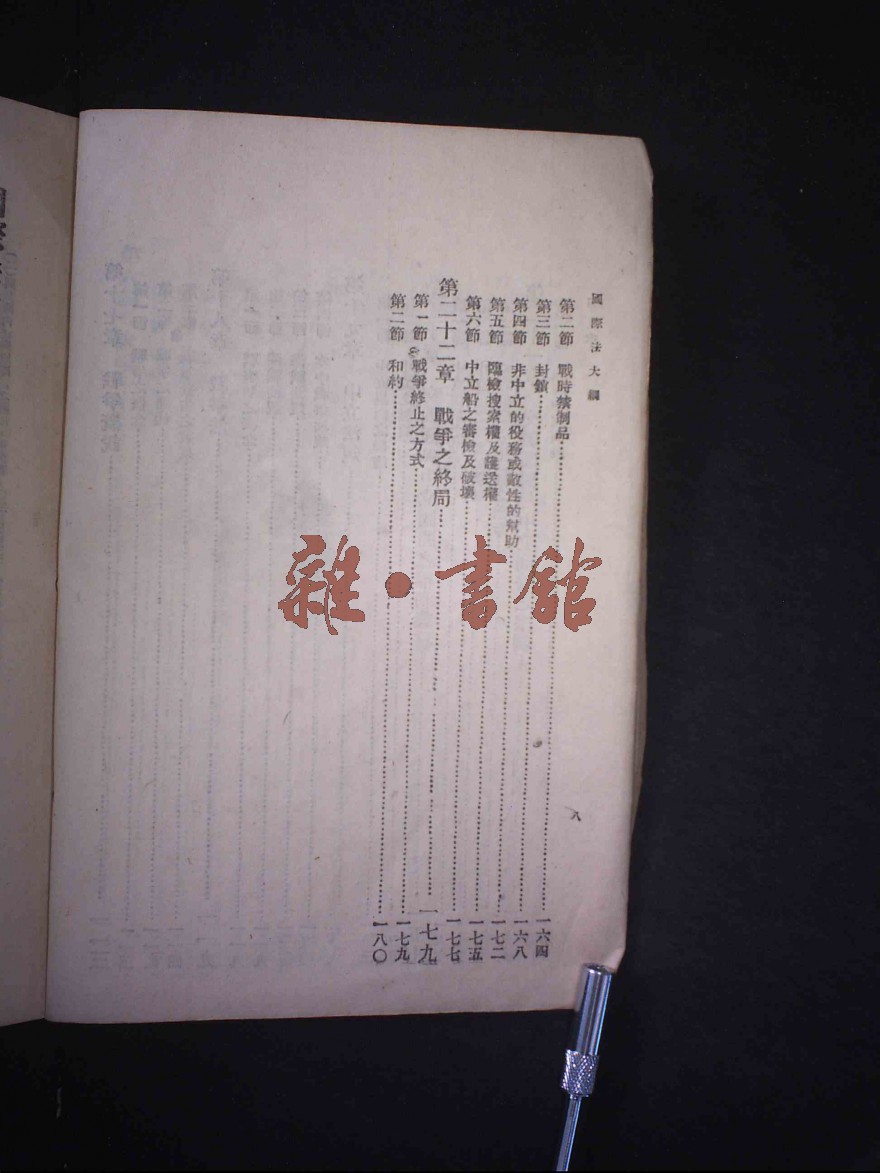 國際法大綱
八
第二節 戰時禁制品……一六四
第三節 封鎖……一六八
第四節 非中立的役務或敵性的幫助……一七二
第五節 臨檢搜索權及護送權……一七五
第六節 中立船之審檢及破壞……一七七
第二十二章 戰爭之終局……一七九
第一節 戰爭終止之方式……一七九
第二節 和約……一八〇
雜·書館